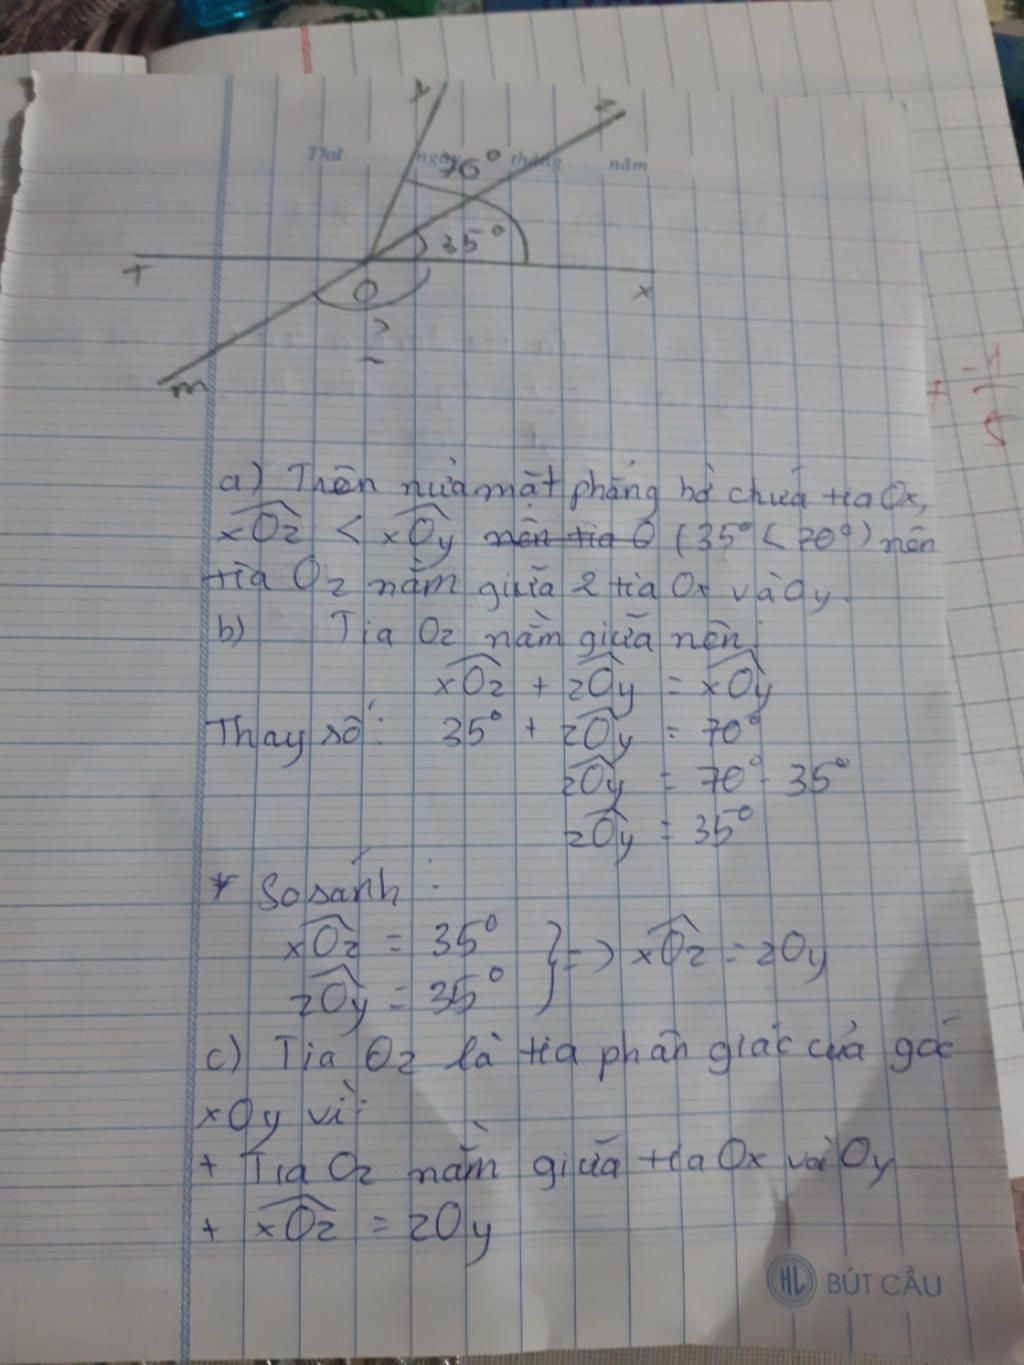 y
z
Thứ ngày tháng năm
70°
35°
T
O
x
?
m
a) Trên nửa mặt phẳng bờ chứa tia Ox,
xOz < xOy nên tia O (35° < 70°) nên
tia Oz nằm giữa 2 tia Ox và Oy.
b) Tia Oz nằm giữa nên:
xOz + zOy = xOy
Thay số: 35° + zOy = 70°
zOy = 70° - 35°
zOy = 35°
* So sánh:
xOz = 35°
zOy = 35° } => xOz = zOy
c) Tia Oz là tia phân giác của góc
xOy vì:
+ Tia Oz nằm giữa tia Ox và Oy
+ xOz = zOy
HL BÚT CẦU